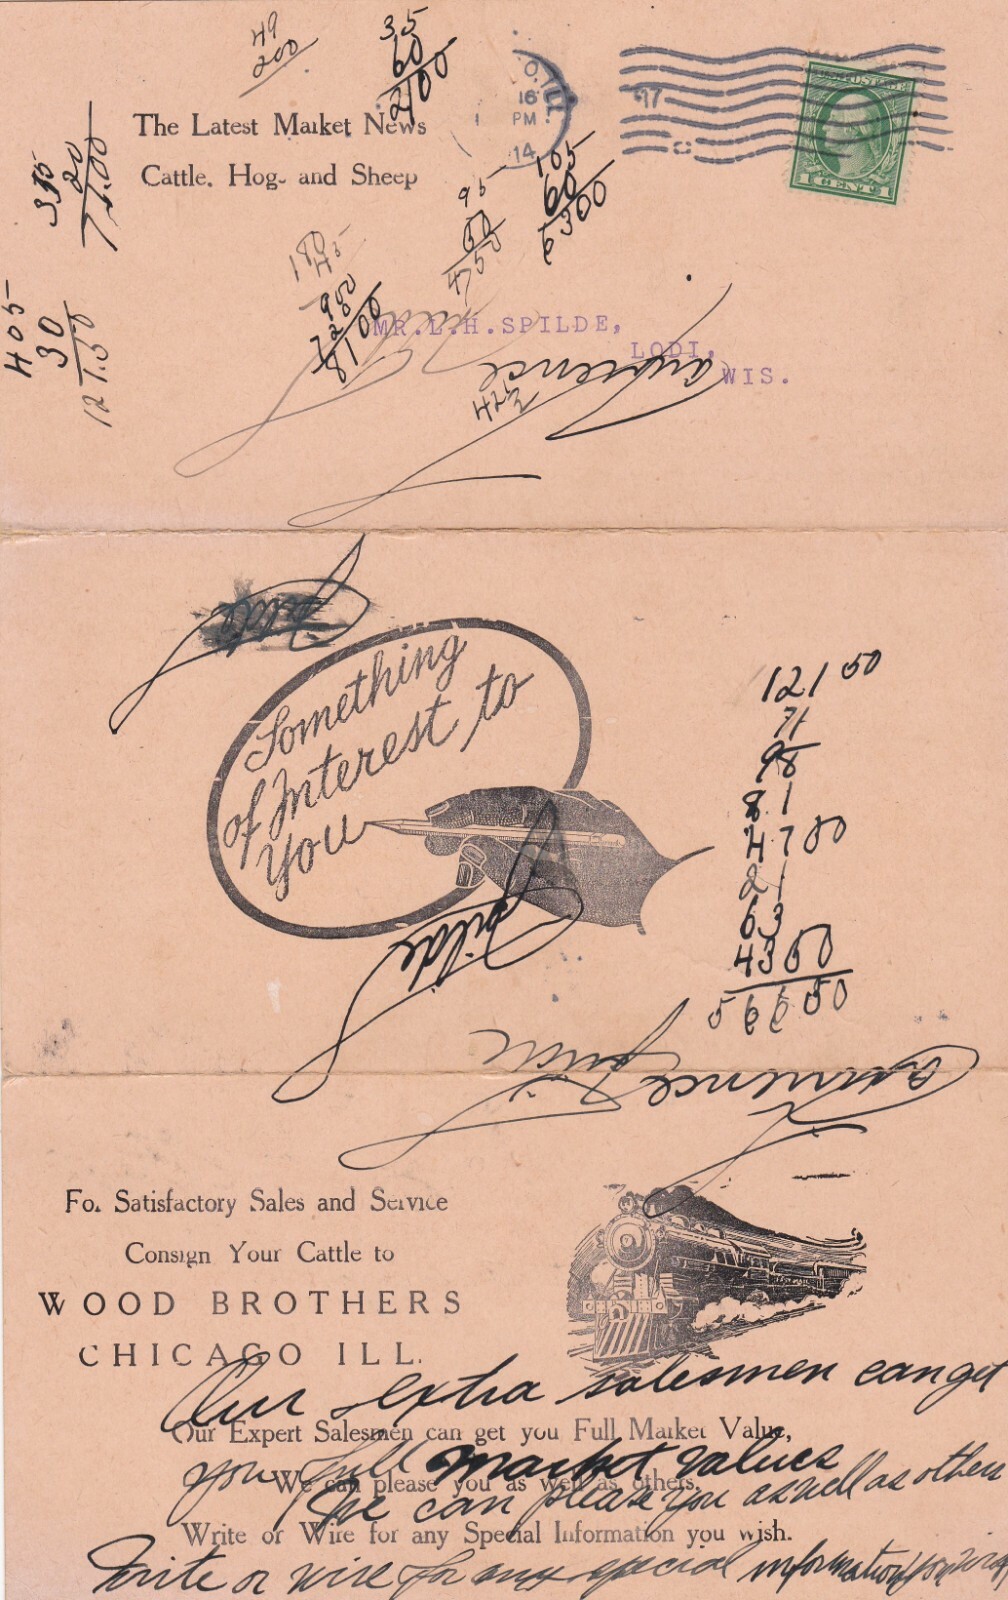 49
200
35
60
2100
The Latest Market News
Cattle, Hog- and Sheep
O, ILL
16
PM
14
97
POSTAGE
1 CENT 1
355
20
71.00
405
30
121.50
180
45
900
720
8100
95
50
4750
105
60
6300
MR.L.H.SPILDE,
LODI,
WIS.
Laurence
425
Spilde
Something
of Interest to
You
121 50
71
98
81
47 50
21
63
43 50
Spilde
Laurence
For Satisfactory Sales and Service
Consign Your Cattle to
WOOD BROTHERS
CHICAGO ILL.
Our extra salesmen can get
Our Expert Salesmen can get you Full Market Value,
you full market values
We can please you as well as others.
We can please you as well as others
Write or Wire for any Special Information you wish.
Write or wire for any special information you wish